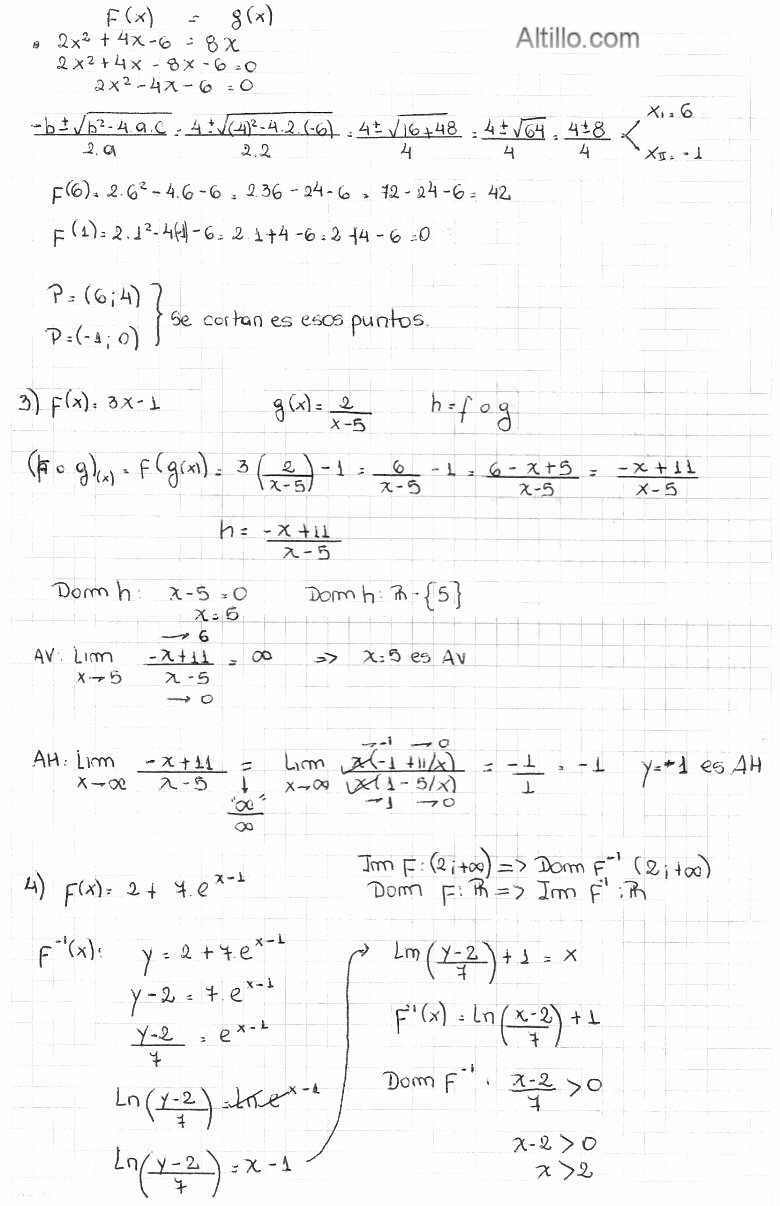 F(x) = g(x)
Altillo.com
2x² + 4x - 6 = 8x
2x² + 4x - 8x - 6 = 0
2x² - 4x - 6 = 0
-b ± √(b² - 4.a.c) / 2.a = 4 ± √((-4)² - 4.2.(-6)) / 2.2 = 4 ± √(16 + 48) / 4 = 4 ± √64 / 4 = 4 ± 8 / 4 < x_I = 6
x_II = -1
F(6) = 2.6² - 4.6 - 6 = 2.36 - 24 - 6 = 72 - 24 - 6 = 42
F(1) = 2.1² - 4(-1) - 6 = 2.1 + 4 - 6 = 2 + 4 - 6 = 0
P = (6; 4)
P = (-1; 0) } Se cortan es esos puntos.
3) F(x) = 3x - 1 g(x) = 2/(x-5) h = f o g
(F o g)(x) = F(g(x)) = 3 (2/(x-5)) - 1 = 6/(x-5) - 1 = (6 - x + 5)/(x-5) = (-x + 11)/(x-5)
h = (-x + 11)/(x - 5)
Dom h: x - 5 = 0 Dom h: R - {5}
x = 5
→ 6
AV: Lim x→5 (-x+11)/(x-5) = ∞ => x = 5 es AV
→ 0
→ -1 → 0
AH: Lim x→∞ (-x+11)/(x-5) = Lim x→∞ x(-1 + 11/x)/x(1 - 5/x) = -1/1 = -1 y = -1 es AH
↓ "∞"/∞ → 1 → 0
Im F: (2; +∞) => Dom F⁻¹ (2; +∞)
4) F(x) = 2 + 7.e^(x-1) Dom F: R => Im F⁻¹: R
F⁻¹(x): y = 2 + 7.e^(x-1)
y - 2 = 7.e^(x-1)
(y-2)/7 = e^(x-1)
Ln((y-2)/7) = ln e^(x-1)
Ln((y-2)/7) = x - 1
Ln((y-2)/7) + 1 = x
F⁻¹(x) = Ln((x-2)/7) + 1
Dom F⁻¹: (x-2)/7 > 0
x - 2 > 0
x > 2